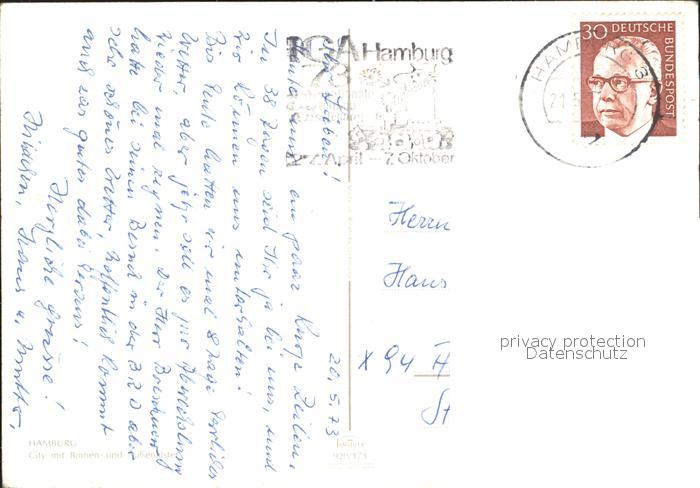 IGA Hamburg
April - 7. Oktober
HAMBURG
30 DEUTSCHE BUNDESPOST
20.5.73
Ihr Lieben!
Heute kurz ein paar kurze Zeilen.
In 38 sind Sie ja bei uns, und
wir können uns unterhalten!
Bis heute hatten wir mal 8 Tage herrliches
Wetter, aber jetzt soll es zur Abwechslung
wieder mal regnen. Der Herr
hatte bei seinem Besuch in der BRD aber
sehr schönes Wetter, hoffentlich kommt
auch was gutes dabei heraus!
Herzliche Grüsse!
Hans u. Mutter,
Herrn
Hans
X 94
HAMBURG
City mit Binnen- und Außenalster
929/173
privacy protection
Datenschutz